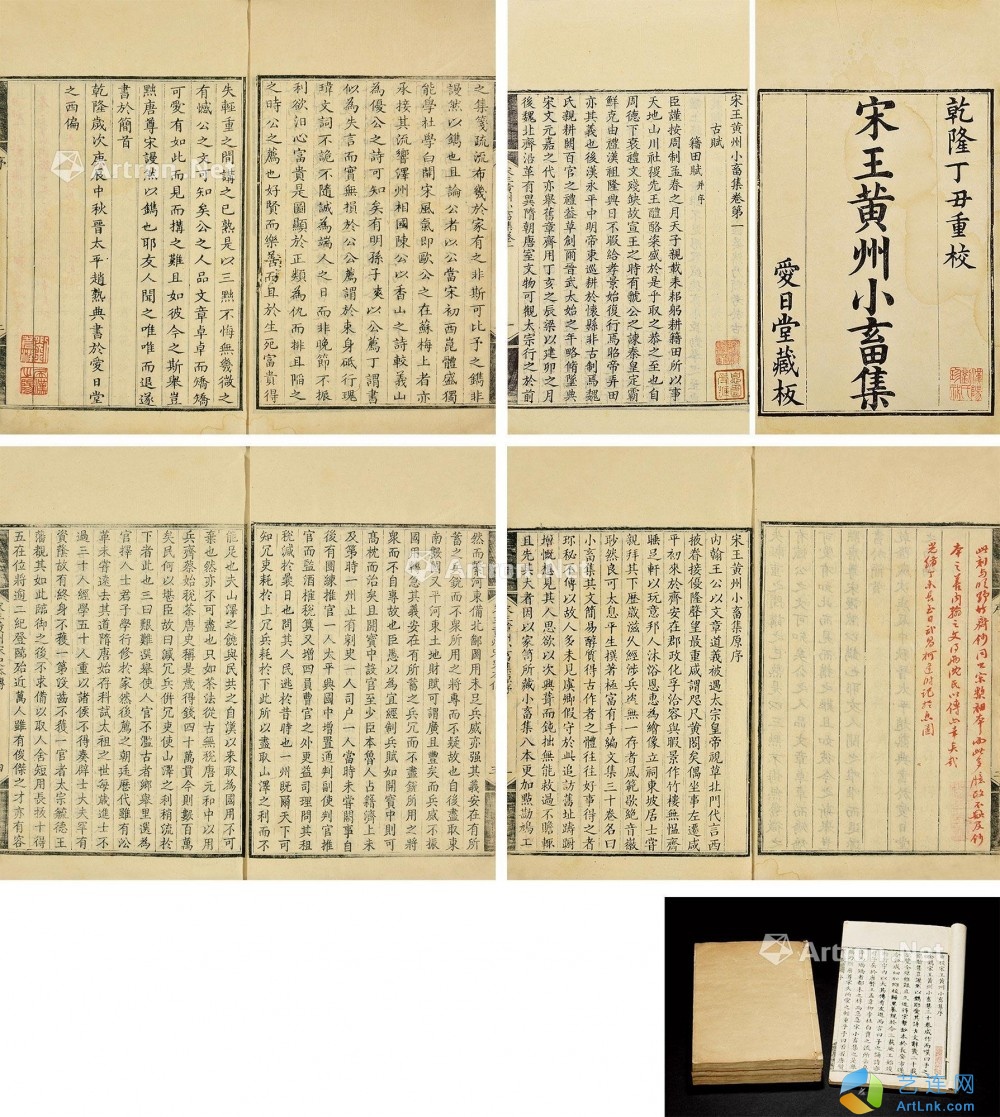 乾隆丁丑重校
宋王黃州小畜集
愛日堂藏板
宋王黃州小畜集卷第一
古賦
籍田賦并序
臣謹按周制孟春之月天子親載耒耜躬耕籍田所以事
天地山川社稷先王醴酪粢盛於是乎取之恭之至也自
周德下衰禮文殘缺故宣王之時有虢公之諫秦皇定霸
鮮克由禮漢祖隆興日不暇給孝景始復行焉昭帝弄田
亦其義也後漢永平中明帝東巡耕於懷縣非古制焉魏
氏親耕闕百官之禮蓋草創爾晉武太始之年略脩墜典
宋文元嘉之代亦舉舊章齊用丁亥之辰梁以建卯之月
後魏北齊沿革有異隋朝唐室文物可觀太宗行之於前
之集箋疏流布幾於家有之非斯可比予之鐫非
謾然以鐫也且論公者以公當宋初西崑體盛獨
能學杜學白開宋風氣即歐公之在蘇梅上者亦
承接其流響澤州相國陳公以香山之詩較義山
為優公之詩可知矣有明孫子爽以公薦丁謂書
似為失言而實無損於公公薦謂於束身砥行瑰
瑋文詞不詭不隨誠為端人之日而非晚節不振
利欲汩心富貴是圖顯於正類為仇而排且陷之
之時公之薦也好賢而樂善而且於生死富貴得
失輕重之間講之已熟是以三黜不悔無幾微之
有憾公之文可知矣公之人品文章卓卓而矯矯
可愛有如此而見而搆之難且如彼今之斯舉豈
黙唐尊宋謾然以鐫也耶友人聞之唯唯而退遂
書於簡首
乾隆歲次庚辰中秋晉太平趙熟典書於愛日堂
之西偏
光緒丁
宋王黃州小畜集原序
內翰王公以文章道義被遇太宗皇帝視草北門代言西
掖眷接優隆聲望最重咸謂咫尺黃閣偶坐事左遷咸
平初來於齊安在郡政化孚洽容與暇景作竹樓無慍齋
睡足軒以玩意邦人沐浴恩惠為繪像立祠東坡居士嘗
親拜其下歷歲滋久經涉兵燹無一存者風範歇絕音徽
眇然良可太息平生撰著極富有手編文集三十卷名曰
小畜集其文簡易醇質得古作者之體往往好事得之者
珍秘不傳以故人多未見虞卿假守於此追訪舊址踌躕
增慨遙見其人思欲以次興葺而鈍拙無能救過不贍輒
且先其大者因以家笥所藏小畜集八本更加點勘鳩工
然而自河東備北鄙國用未足兵威亦强其義安在有所
蓄之兵銳而不衆所用之將專而不疑故也自後盡取東
南數國又平河東土地財賦可謂廣且豐矣而兵威不振
國用轉急其義安在所蓄之兵冗而不盡銳所用之將
衆而不自專故也臣愚以為宜經制兵賦如開寶中則可
高枕而治矣且開寶中設官至少臣本魯人占籍濟上未
及第時一州止有刺史一人司户一人當時未嘗闕事自
後有團練推官一人太平興國中增置通判副使判官推
官而監酒榷税筭又增四員曹官之外更益司理問其租
税減於曩日也問其人民逃於昔時也一州旣爾天下可
知冗吏耗於上冗兵耗於下此所以盡取山澤之利而不
能足也夫山澤之饒與民共之自漢以來取為國用不可
棄也然亦不可盡也只如茶法從古無稅唐元和中以用
兵齊蔡始税茶唐史稱是歲得錢四十萬貫今則數百萬
矣民何以堪臣故曰減冗兵併冗吏使山澤之利稍流於
下者此也三曰艱難選舉使入官不濫古者鄉舉里選為
官擇人士君子學行修於家然後薦之朝廷歷代雖有沿
革未嘗遠去其道隋唐始有科試太祖之世每歲進士不
過三十人經學五十人重以諸侯不得奏辟士大夫罕有
資蔭故有終身不獲一第沒齒不獲一官者太宗毓德王
藩覩其如此臨御之後不求備以取人舍短用長拔十得
五在位將逾二紀登臨殆近萬人雖有俊傑之才亦有容
Artron.Net
艺连网
ArtLnk.com